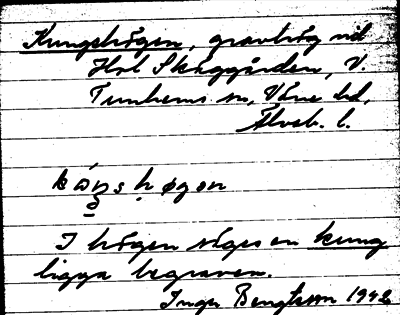 Kungshögen, gravhög vid
Hol Skäggården, V.
Tunhems sn, Väne hd,
Älvsb. l.
kóŋshøgən
I högen säges en kung
ligga begraven.
Inga Bengtsson 1942